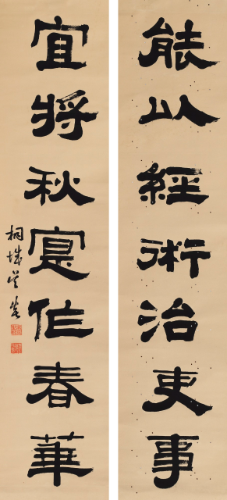 能以經術治吏事
宜將秋寔作春華
桐城